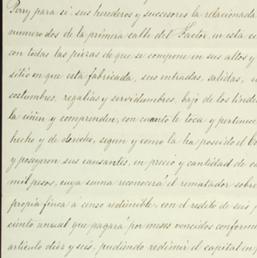 Pery para si, sus herederos y successores la relacionada
numero dos de la primera calle del Factor, en esta ci
con todas las piezas de que se compone en sus altos y
sitio en que está fabricada, sus entradas, salidas, u
costumbres, regalias y servidumbres, bajo de los linde
la ciñen y comprenden, con cuanto le toca y pertenece
hecho y de derecho, segun y como la ha poseido el
y poseyeron sus causantes, en precio y cantidad de
mil pesos, cuya suma reconocerá el rematador, sobre
propia finca á censo redimible, con el redito de seis p
ciento anual que pagará por meses vencidos conforme
articulo diez y seis, pudiendo redimir el capital en p